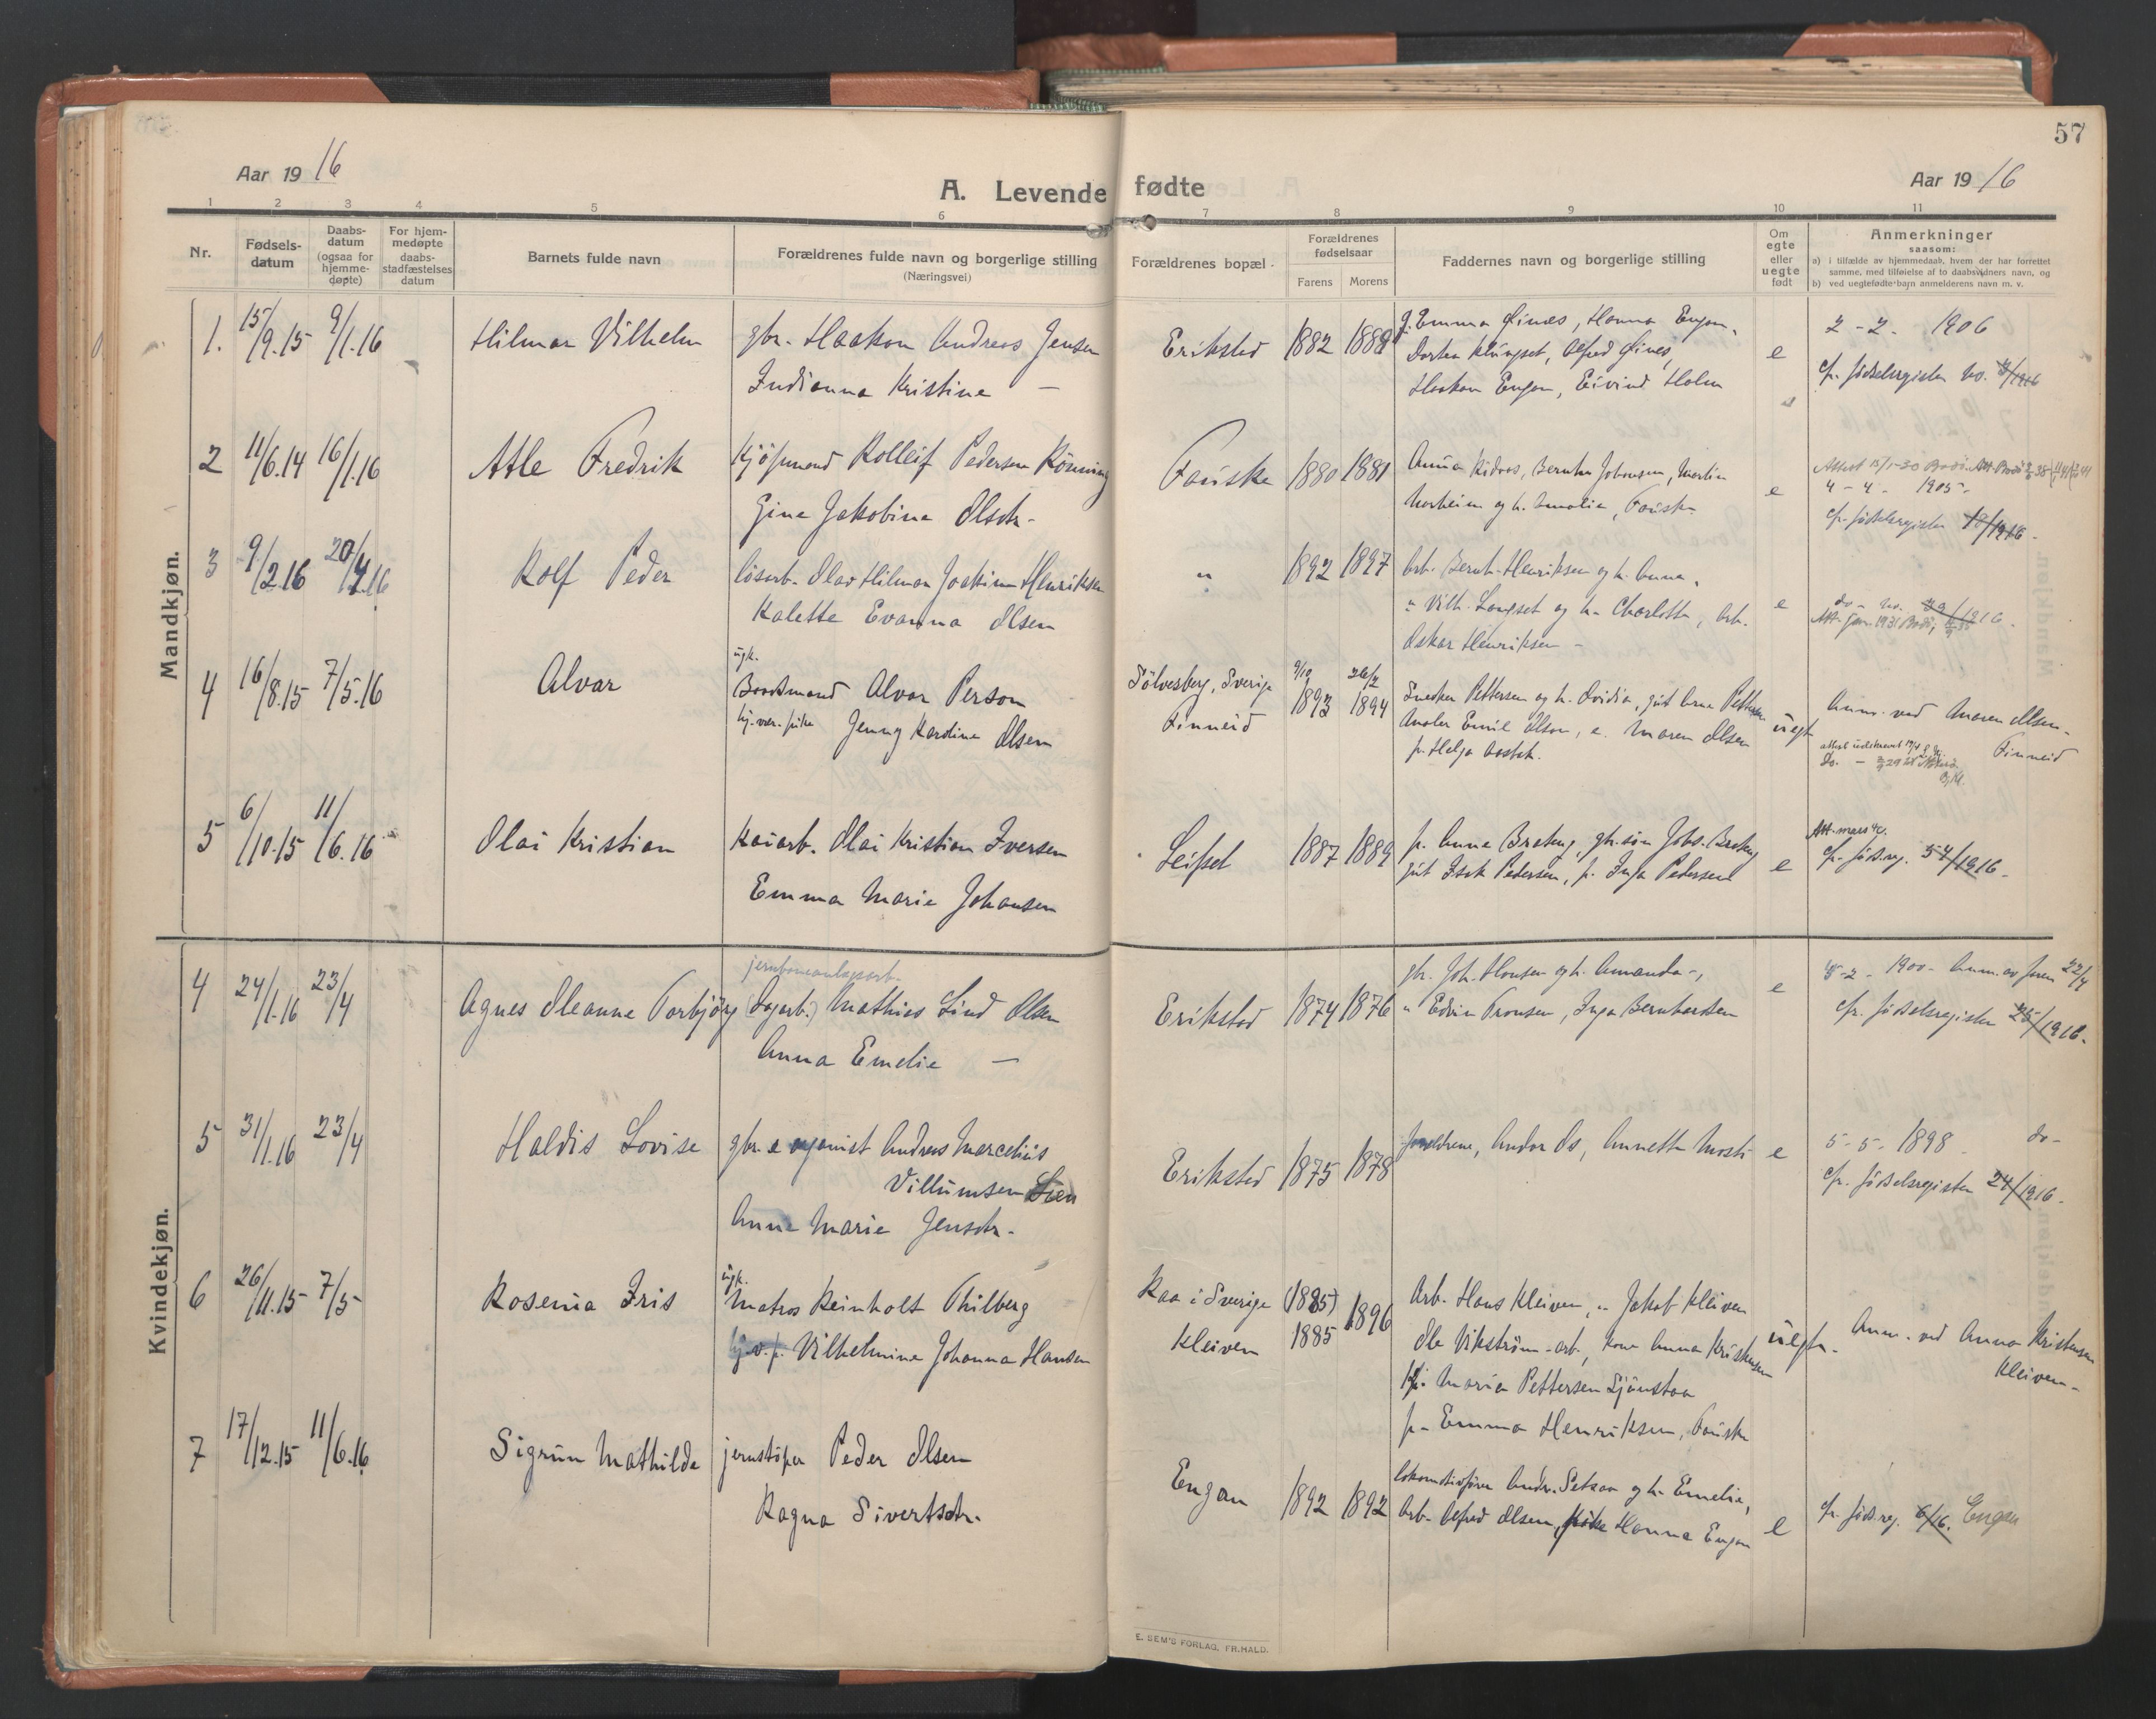 57
Aar 1916
A. Levende fødte
Aar 1916
1 2 3 4 5 6 7 8 9 10 11
Nr.
Fødsels-
datum
Daabs-
datum
(ogsaa for
hjemme-
døpte)
For hjem-
medøpte
daabs-
stadfæstelses
datum
Barnets fulde navn
Forældrenes fulde navn og borgerlige stilling
(Næringsvei)
Forældrenes bopæl
Forældrenes
fødselsaar
Farens Morens
Faddernes navn og borgerlige stilling
Om
egte
eller
uegte
født
Anmerkninger
saasom:
a) i tilfælde av hjemmedaab, hvem der har forrettet
samme, med tilføielse af to daabsvidners navn, og
b) ved uegtefødte barn anmelderens navn m. v.
Mandkjøn.
1. 15/9.15 9/1.16 Hilmar Vilhelm gbr. Haakon Andreas Jensen Erikstad 1882 1889 Emma Fines, Hanna Engan, e 2-2. 1906
Indianna Kristine — Dorthea Klungset, Alfred Fines, cfr. fødselsregister no.
Haakon Engan, Eivind Holm
2 11/6.14 16/1.16 Atle Fredrik Kjøpmand Rolleif Pedersen Rønning Fauske 1880 1881 Bernha Johansen, Martin e 4-4- 1905-
Gine Jakobine Olsdtr. Norheim og h. Amalie, Fauske cfr. fødselsregister 10/1916.
3 9/2.16 20/4.16 Rolf Peder løsarb. Olav Hilmar Joakim Henriksen " 1892 1897 Arb. Bernh. Henriksen og h. Anna, e do- no. 29/1916.
Kalette Evanna Olsen " Vilh. Langset og h. Charlotte, arb.
Oskar Henriksen -
4 16/8.15 7/5.16 Alvar ugk. Baadsmand Alvar Person Sölvesborg, Sverige 9/10 1893 26/2 1894 Pettersen og h. Ovidia, gut Arne Pettersen uegt Anm. ved Maren Olsen
hj.vær. pike Jenny Karoline Olsen Finneid Emil Olsen, e. Maren Olsen Finneid
p. Helga
5 6/10.15 11/6.16 Olai Kristian Kaiarb. Olai Kristian Iversen Leifset 1887 1889 p. Anna Brateng, gbr. søn Johs. Brateng e Att. mars 40.
Emma Marie Johansen gut Isak Pedersen, p. Inga Pedersen cfr. fødsreg. 54/1916.
Kvindekjøn.
4 24/1.16 23/4 Agnes Oleanne Torbjørg jernbaneanlægsarb. (Dagarb.) Mathias Lind Olsen Erikstad 1874 1876 gbr. Joh. Hansen og h. Amanda-, e 1900- Anm. av faren 22/4
Anna Emelie — " Edvin Tronsen, Inga Bernhardsen cfr. fødselsregister 25/1916.
5 31/1.16 23/4 Haldis Lovise gbr. e organist Andreas Marcelius Erikstad 1875 1878 Forældrene, Andor do, Annette Mosti e 5-5- 1898 do-
Villumsen Lien cfr. fødselsregister 24/1916.
Anne Marie Jensdtr.
6 26/11.15 7/5 Rosenia Iris ugk. Matros Reinholt Thilberg Raa i Sverige (1885) 1885 1896 Arb. Hans Kleiven, " Jakob Kleiven uegte. Anm. ved Anna Kristensen
hj.v.p. Vilhelmine Johanna Hansen Kleiven Ole Vikstrøm - arb., kone Anna Kristensen Kleiven-
p. Maria Pettersen Sjønstaa
p. Emma Henriksen, Fauske
7 17/12.15 11/6.16 Sigrun Mathilde jernstøper Peder Olsen Engan 1892 1892 lokomotivfører Andr. Setsaa og h. Emelie, e cfr. fødsreg. 6/16. Engan
Ragna Sivertsdtr. Arb. Alfred Olsen, pike Hanna Engan
E. SEM'S FORLAG, FR.HALD.